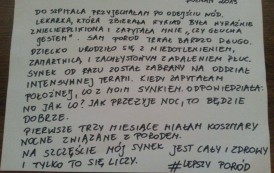 DO SZPITALA PRZYJECHAŁAM PO ODEJŚCIU WÓD,
LEKARKA, KTÓRA ZBIERAŁA WYWIAD BYŁA WYRAŹNIE
ZNIECIERPLIWIONA I ZAPYTAŁA MNIE „CZY GŁUCHA
JESTEM". SAM PORÓD TRWAŁ BARDZO DŁUGO.
DZIECKO URODZIŁO SIĘ Z NIEDOTLENIENIEM,
ZAMARTWICĄ I ZACHŁYSTOWYM ZAPALENIEM PŁUC.
SYNEK OD RAZU ZOSTAŁ ZABRANY NA ODDZIAŁ
INTENSYWNEJ TERAPII. KIEDY ZAPYTAŁAM
POŁOŻNEJ, CO Z MOIM SYNKIEM. ODPOWIEDZIAŁA:
NO JAK CO? JAK PRZEŻYJE NOC, TO BĘDZIE
DOBRZE.
PIERWSZE TRZY MIESIĄCE MIAŁAM KOSZMARY
NOCNE ZWIĄZANE Z PORODEM.
NA SZCZĘŚCIE MÓJ SYNEK JEST CAŁY I ZDROWY
I TYLKO TO SIĘ LICZY.
#LEPSZY PORÓD